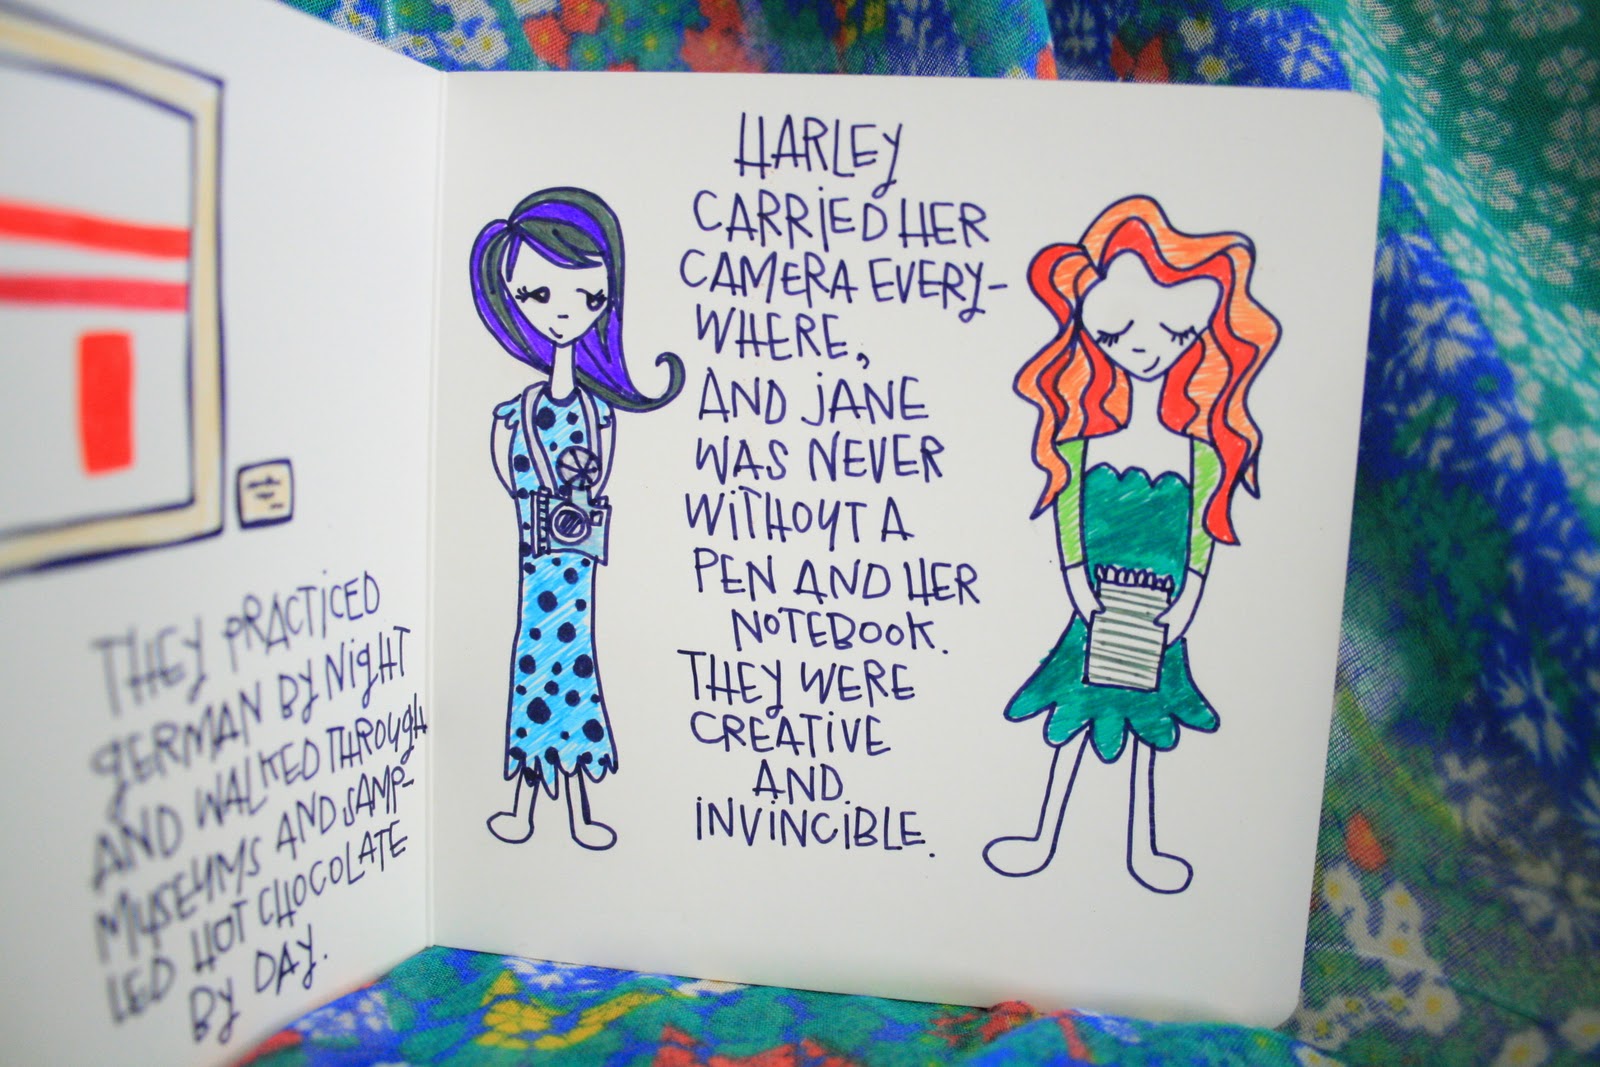 THEY PRACTICED
GERMAN BY NIGHT
AND WALKED THROUGH
MUSEUMS AND SAMP-
LED HOT CHOCOLATE
BY DAY.
HARLEY
CARRIED HER
CAMERA EVERY-
WHERE,
AND JANE
WAS NEVER
WITHOUT A
PEN AND HER
NOTEBOOK.
THEY WERE
CREATIVE
AND
INVINCIBLE.